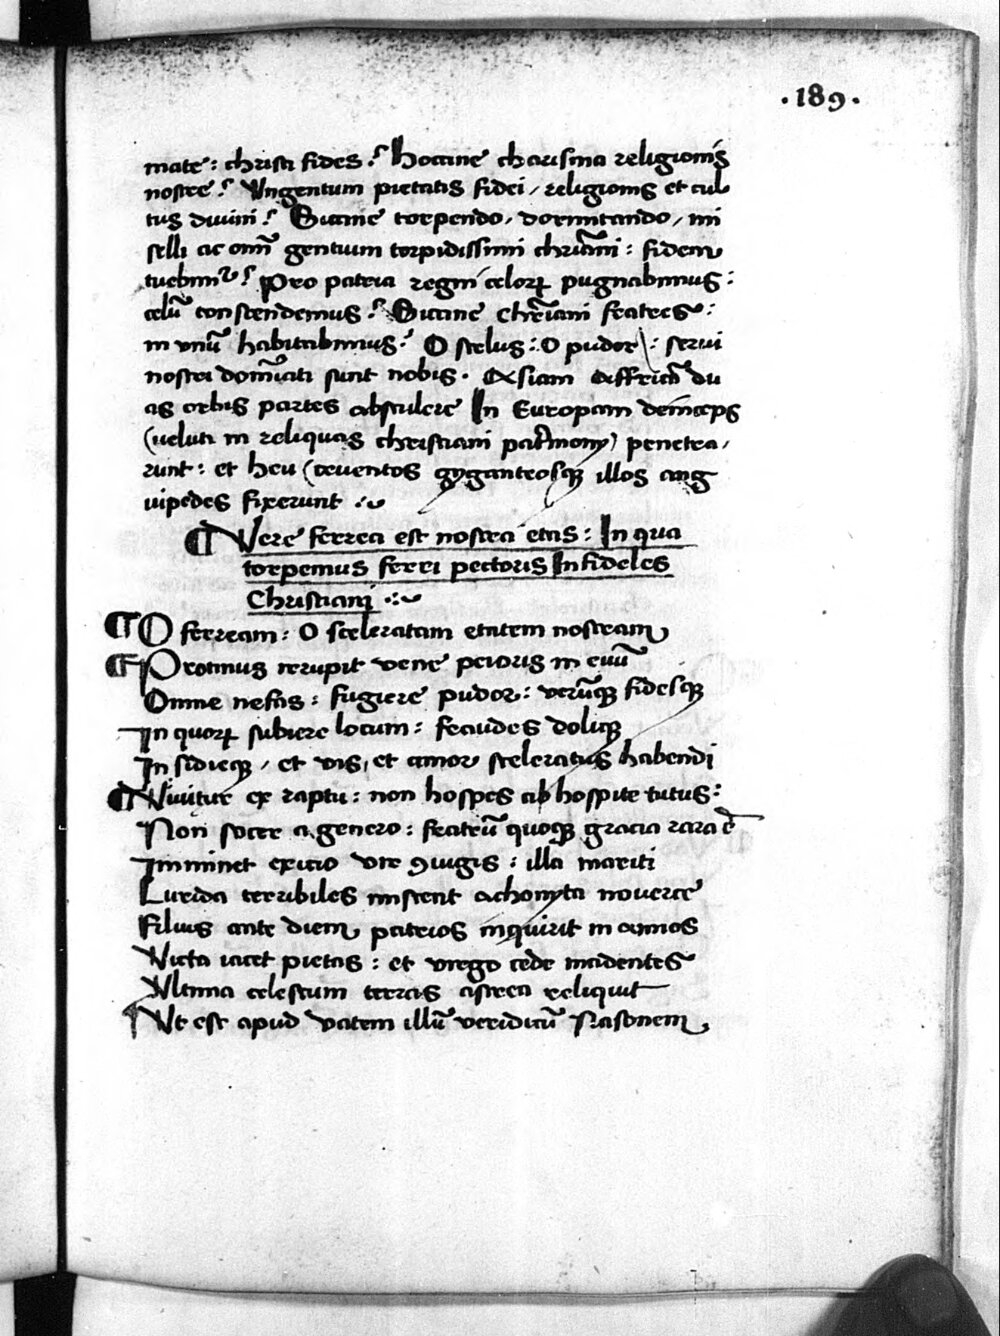 ·189·
mate: christi fides? Hoccine charisma religionis
nostre? Vngentum pietatis fidei, religionis et cul
tus diuini? Siccine torpendo, dormitando, mi
selli ac omĩ gentium torpidissimi chriãni: fidem
tuebimꝰ? Pro patria regni celoꝝ pugnabimus:
celũ conscendemus? Siccine chrĩani fratres:
in vnũ habitabimus? O scelus: O pudor: serui
nostri domĩati sunt nobis. Asiam Affricã du
as orbis partes abstulere In Europam deinceps
(veluti in reliquas christiani patrĩmony) penetra,
runt: et heu cruentos gyganteosqꝫ illos ang
uipedes fixerunt
¶ Vere ferrea est nostra etas: In qua
torpemus ferri pectoris Infideles
Christiani
¶ O ferream: O sceleratam etatem nostram
¶ Protinus irrupit vene peioris in euũ
Omne nefas: fugiere pudor: verũqꝫ fidesqꝫ
In quoꝝ subiere locum: fraudes doliqꝫ
Insidieqꝫ, et vis, et amor sceleratus habendi
¶ Viuitur ex raptu: non hospes ab hospite tutus:
Non socer a genero: fratrũ quoqꝫ gracia rara ẽ
Imminet exicio vir ꝯiugis: illa mariti
Lurida terribiles miscent achonyta nouerce
Filius ante diem patrios inquirit in annos
Victa iacet pietas: et virgo cede madentes
Vltima celestum terras astrea reliquit
¶ Vt est apud vatem illũ veridicũ Nasonem